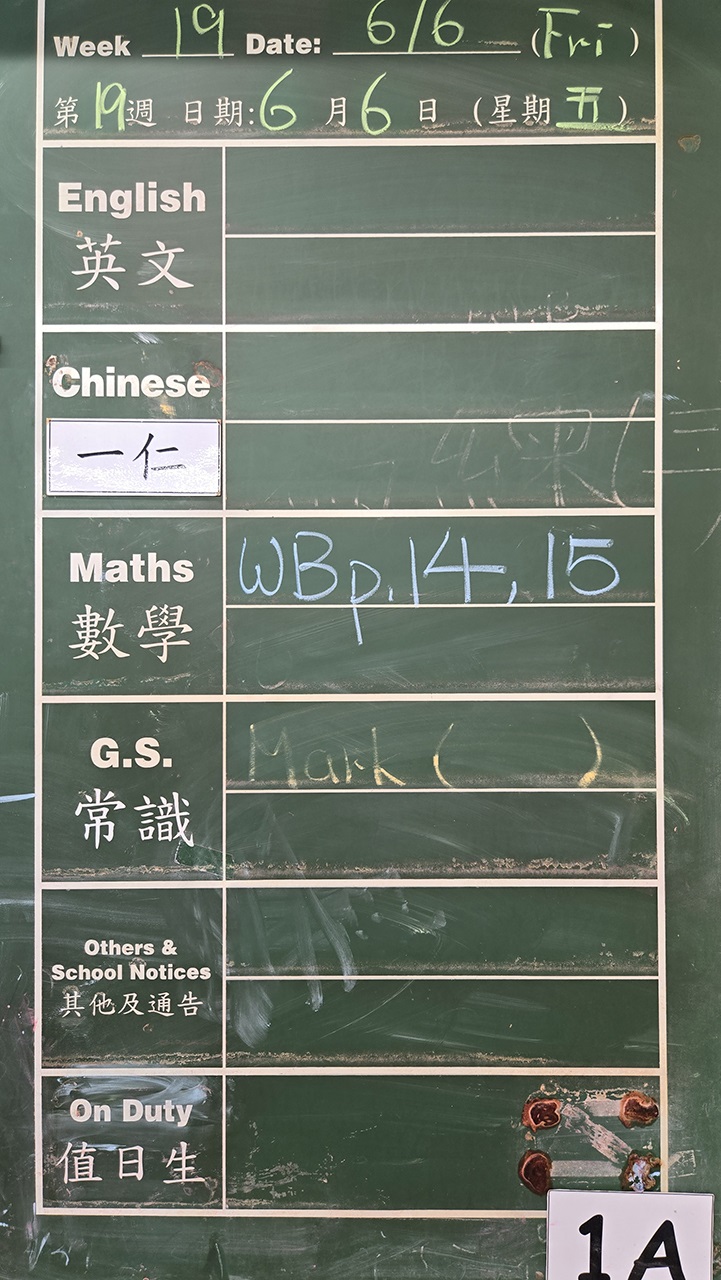 Week 19 Date: 6/6 (Fri)
第19週 日期:6月6日 (星期五)
English
英文
Chinese
一仁
Maths
數學
WBp.14, 15
G.S.
常識
Mark (        )
Others &
School Notices
其他及通告
On Duty
值日生
1A